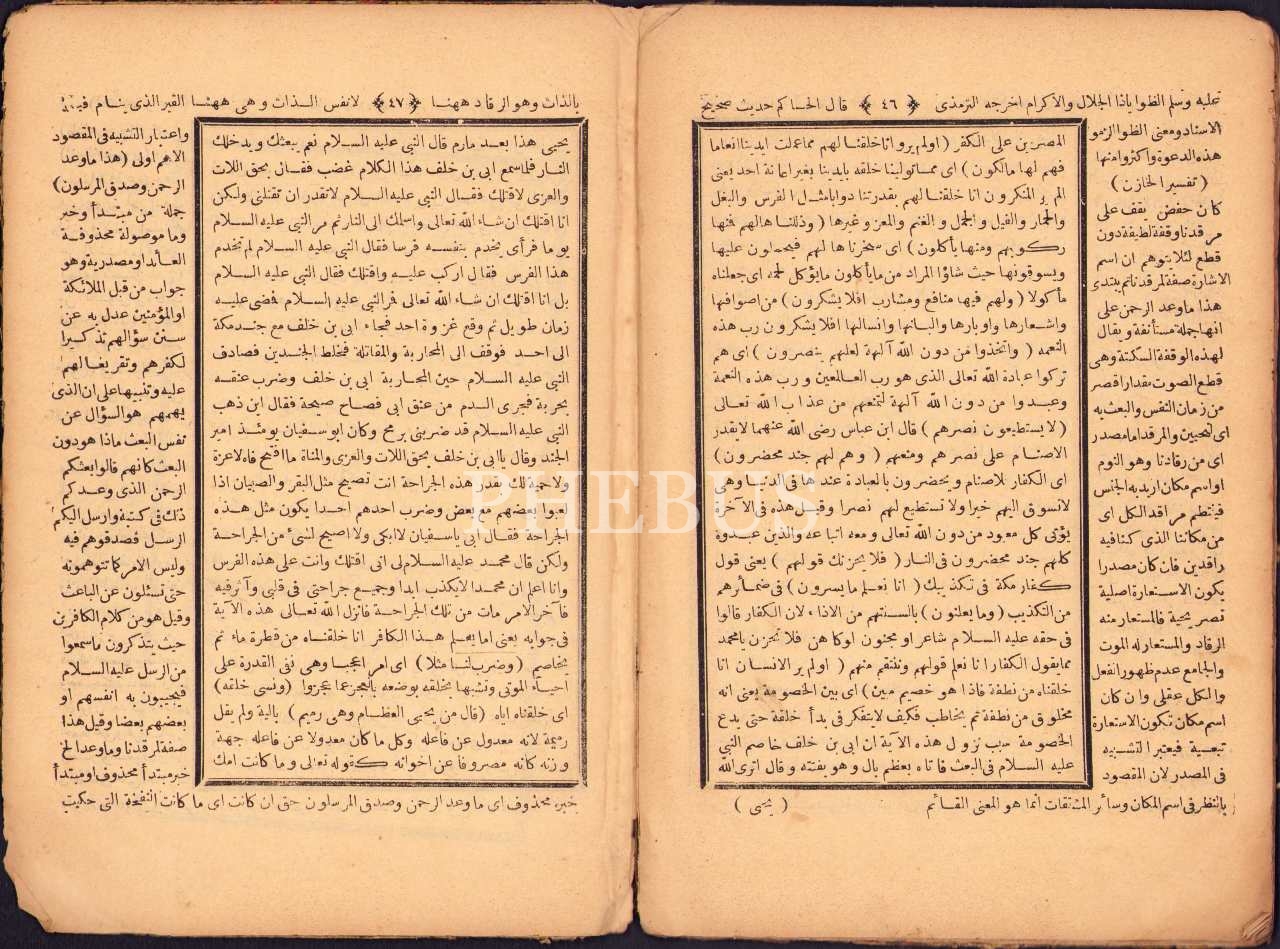 عليه وسلم الظوا ياذا الجلال والاكرام اخرجه الترمذى ﴿ ٤٦ ﴾ قال الحاكم حديث صحيح
المصرين على الكفر ( اولم يروا انا خلقنا لهم مما عملت ايدينا انعاما
فهم لها مالكون ) اى مما تولينا خلقه بايدينا بغير اعانة احد يعنى
الم ير المنكرون انا خلقنا لهم بقدرتنا دوابا مثل الفرس والبغل
والحمار والفيل والجمل والغنم والمعز وغيرها ( وذللناها لهم فنها
ركوبهم ومنها يأكلون ) اى سخرناها لهم فيحملون عليها
ويسوقونها حيث شاؤا المراد من مايأكلون مايؤكل لحمه اى جعلناه
مأكولا ( ولهم فيها منافع ومشارب افلا يشكرون ) من اصوافها
واشعارها واوبارها والبانها وانسالها افلا يشكرون رب هذه
النعمه ( واتخذوا من دون الله آلهة لعلهم ينصرون ) اى هم
تركوا عبادة الله تعالى الذى هو رب العالمين ورب هذه النعمة
وعبدوا من دون الله آلهة لتمنعهم من عذاب الله تعالى
( لا يستطيعون نصرهم ) قال ابن عباس رضى الله عنهما لايقدر
الاصنام على نصرهم ومنعهم ( وهم لهم جند محضرون )
اى الكفار للاصنام ويحضرون بالعبادة عندها فى الدنيا وهى
لاتسوق اليهم خيرا ولا تستطيع لهم نصرا وقيل هذه فى الآخرة
يؤتى كل معبود من دون الله تعالى ومعه اتباعه والذين عبدوه
كلهم جند محضرون فى النار ( فلا يحزنك قولهم ) يعنى قول
كفار مكة فى تكذيبك ( انا نعلم ما يسرون ) فى ضمائرهم
من التكذيب ( وما يعلنون ) بالسنتهم من الاذاء لان الكفار قالوا
فى حقه عليه السلام شاعر او مجنون او كاهن فلا تحزن يا محمد
مما يقول الكفار انا نعلم قولهم وننتقم منهم ( اولم ير الانسان انا
خلقناه من نطفة فاذا هو خصيم مبين ) اى بين الخصومة يعنى انه
مخلوق من نطفة ثم يخاطب فكيف لايتفكر فى بدأ خلقة حتى يدع
الخصومة سبب نزول هذه الآية ان ابى بن خلف خاصم النبى
عليه السلام فى البعث فاتاه بعظم بال وهو يفتته وقال اترى الله
الاسناد ومعنى الظوا الزموا
هذه الدعوة واكثروا منها
( تفسير الخازن )
كان حفص يقف على
مرقدنا وقفة لطيفة دون
قطع لئلا يتوهم ان اسم
الاشارة صفة لمرقدنا ثم يبتدئ
هذا ما وعد الرحمن على
انها جملة مستأنفة ويقال
لهذه الوقفة السكتة وهى
قطع الصوت مقدارا قصر
من زمان النفس والبعث به
اى لنحيين والمرقد اما مصدر
اى من رقادنا وهو النوم
او اسم مكان اريد به الجنس
فينتظم مراقد الكل اى
من مكاننا الذى كنا فيه
راقدين فان كان مصدرا
يكون الاستعارة اصلية
تصريحية فالمستعار منه
الرقاد والمستعار له الموت
والجامع عدم ظهور الفعل
والكل عقلى وان كان
اسم مكان تكون الاستعارة
تبعية فيعتبر التشبيه
فى المصدر لان المقصود
بالنظر فى اسم المكان وسائر المشتقات انما هو المعنى القائم ( يحيى )
بالذات وهو الرقاد ههنا ﴿ ٤٧ ﴾ لانفس الذات وهى ههنا القبر الذى ينام فيه
يحيى هذا بعد مارم قال النبى عليه السلام نعم يبعثك ويدخلك
النار فلما سمع ابى بن خلف هذا الكلام غضب فقال بحق اللات
والعزى لاقتلك فقال النبى عليه السلام لاتقدر ان تقتلنى ولكن
انا اقتلك ان شاء الله تعالى واسلك الى النار ثم مر النبى عليه السلام
يوما فرأى يخدم بنفسه فرسا فقال النبى عليه السلام لم تخدم
هذا الفرس فقال اركب عليه واقتلك فقال النبى عليه السلام
بل انا اقتلك ان شاء الله تعالى فر النبى عليه السلام فمضى عليه
زمان طويل ثم وقع غزوة احد فجاء ابى بن خلف مع جند مكة
الى احد فوقف الى المحاربة والمقاتلة فخلط الجندين فصادف
النبى عليه السلام حين المحاربة ابى بن خلف وضرب عنقه
بحربة فجرى الدم من عنق ابى فصاح صيحة فقال ابن ذهب
النبى عليه السلام قد ضربنى برمح وكان ابو سفيان يومئذ امير
الجند وقال يا ابى بن خلف بحق اللات والعزى والمناة ما اقبح فاه لاعزة
ولا حمية لك بقدر هذه الجراحة انت تصيح مثل البقر والصبيان اذا
لعبوا بعضهم مع بعض وضرب احدهم احدا يكون مثل هذه
الجراحة فقال ابى ياسفيان لا ابكى ولا اصيح لشئ من الجراحة
ولكن قال محمد عليه السلام لى انى اقتلك وانت على هذه الفرس
وانا اعلم ان محمدا لايكذب ابدا وجميع جراحتى فى قلبى وآثر فيه
فآخر الامر مات من تلك الجراحة فانزل الله تعالى هذه الآية
فى جوابه يعنى اما يعلم هذا الكافر انا خلقناه من قطرة ماء ثم
يخاصم ( وضرب لنا مثلا ) اى امرا عجيبا وهى نفى القدرة على
احياء الموتى وتشبها بخلقه بوضعه بالعجز عما عجزوا ( ونسى خلقه )
اى خلقناه اياه ( قال من يحيى العظام وهى رميم ) بالية ولم يقل
رميمة لانه معدول عن فاعله وكل ما كان معدولا عن فاعله جهة
وزنه كانه مصروفا عن اخوانه كقوله تعالى وما كانت امك
واعتبار التشبيه فى المقصود
الاهم اولى ( هذا ما وعد
الرحمن وصدق المرسلون )
جملة من مبتدأ وخبر
وما موصولة محذوفة
العائد او مصدرية وهو
جواب من قبل الملائكة
او المؤمنين عدل به عن
سنن سؤالهم تذكيرا
لكفرهم وتقريعا لهم
عليه وتنبيها على ان الذى
يهمهم هو السؤال عن
نفس البعث ماذا هو دون
البعث كانهم قالوا بعثكم
الرحمن الذى وعدكم
ذلك فى كتبه وارسل اليكم
الرسل فصدقوهم فيه
وليس الامر كما تتوهمونه
حتى تسئلون عن الباعث
وقيل هو من كلام الكافرين
حيث يتذكرون ما سمعوا
من الرسل عليه السلام
فيجيبون به انفسهم او
بعضهم بعضا وقيل هذا
صفة لمرقدنا وما وعد الخ
خبر مبتدأ محذوف او مبتدأ
خبره محذوف اى ما وعد الرحمن وصدق المرسلون حق ان كانت اى ما كانت النفخة التى حكيت
PHEBUS